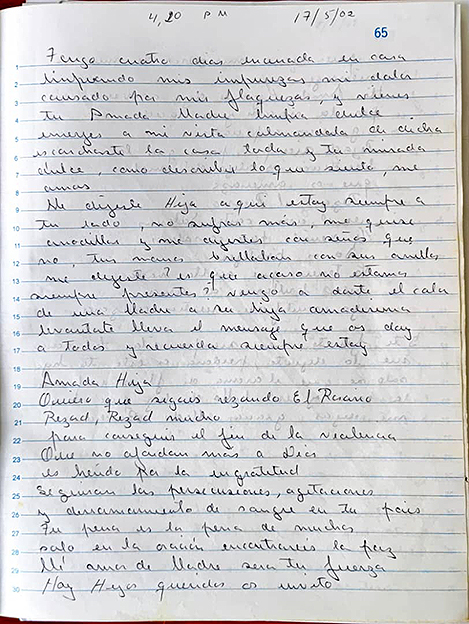 4,20 PM 17/5/02
65
Tengo cuatro dias encerrada en casa
limpiando mis impurezas mi dolor
causado por mis flaquezas, y vienes
tu Amada Madre limpia dulce
emerges a mi vista calmandola de dicha
escarchaste la casa toda y tu mirada
dulce, como describir lo que siento, me
amas
Me dijeste Hija aqui estoy siempre a
tu lado, no sufras más, me quise
arrodillar y me dijestes con señas que
no, tus manos brillaban con sus anillos
me dijeste ? es que acaso no estamos
siempre presentes? vengo a darte el calor
de una Madre a su hija amadisima
levantate lleva el mensaje que os doy
a Todos y recuerda siempre estoy
Amada Hija
Quiero que sigais rezando El Rosario
Rezad, Rezad mucho
para conseguir el fin de la violencia
Que no ofendan mas a Dios
es herido por la ingratitud
Seguiran las persecusiones, agitaciones
y derramamiento de sangre en tu pais
Tu pena es la pena de muchos
solo en la oración encontrareis la paz
Mi amor de Madre sera tu fuerza
Hoy Hijos queridos os invito